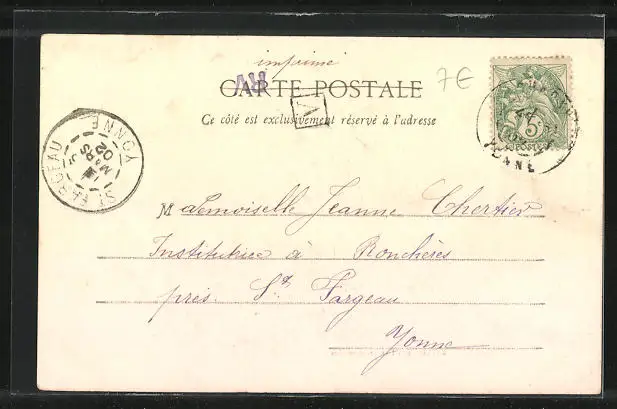 imprimé
CARTE POSTALE
7€
Ce côté est exclusivement réservé à l'adresse
ST FARGEAU
YONNE
02
5
POSTES
Mademoiselle Jeanne Chertier
Institutrice à Ronchères
près St Fargeau
Yonne